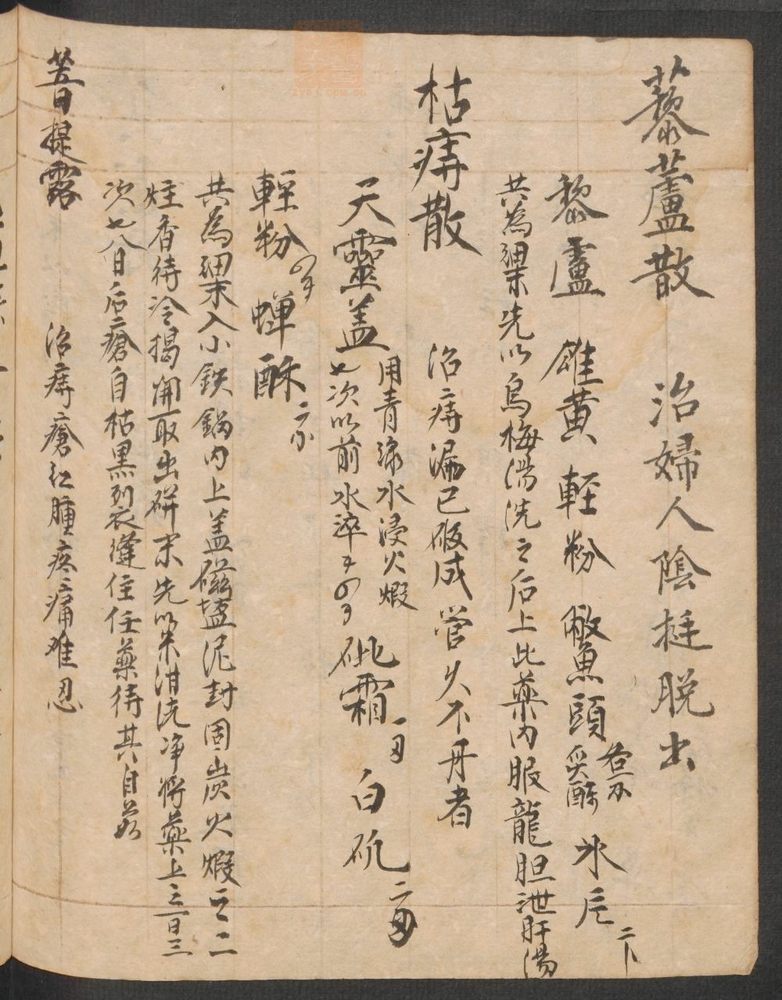 藜蘆散　治婦人陰挺脱出
藜蘆　雄黄　輕粉　鱉魚頭炙酥各三分　氷片二卜
共為細末先以烏梅湯洗之后上此藥内服龍胆泄肝湯
枯痔散　治痔漏已破成管久不丹者
天靈盖用青綠水浸火煆七次以前水淬　砒霜一两　白矾二两
輕粉　蟬酥二分
共為細末入小鉄鍋内上盖磁盌泥封固炭火煆二
炷香待冷揭開取出研末先以米泔洗净将藥上之一日三
次七八日后瘡自枯黑列衣縫住任藥待其自落
翌日提露　治痔瘡红腫疼痛难忍